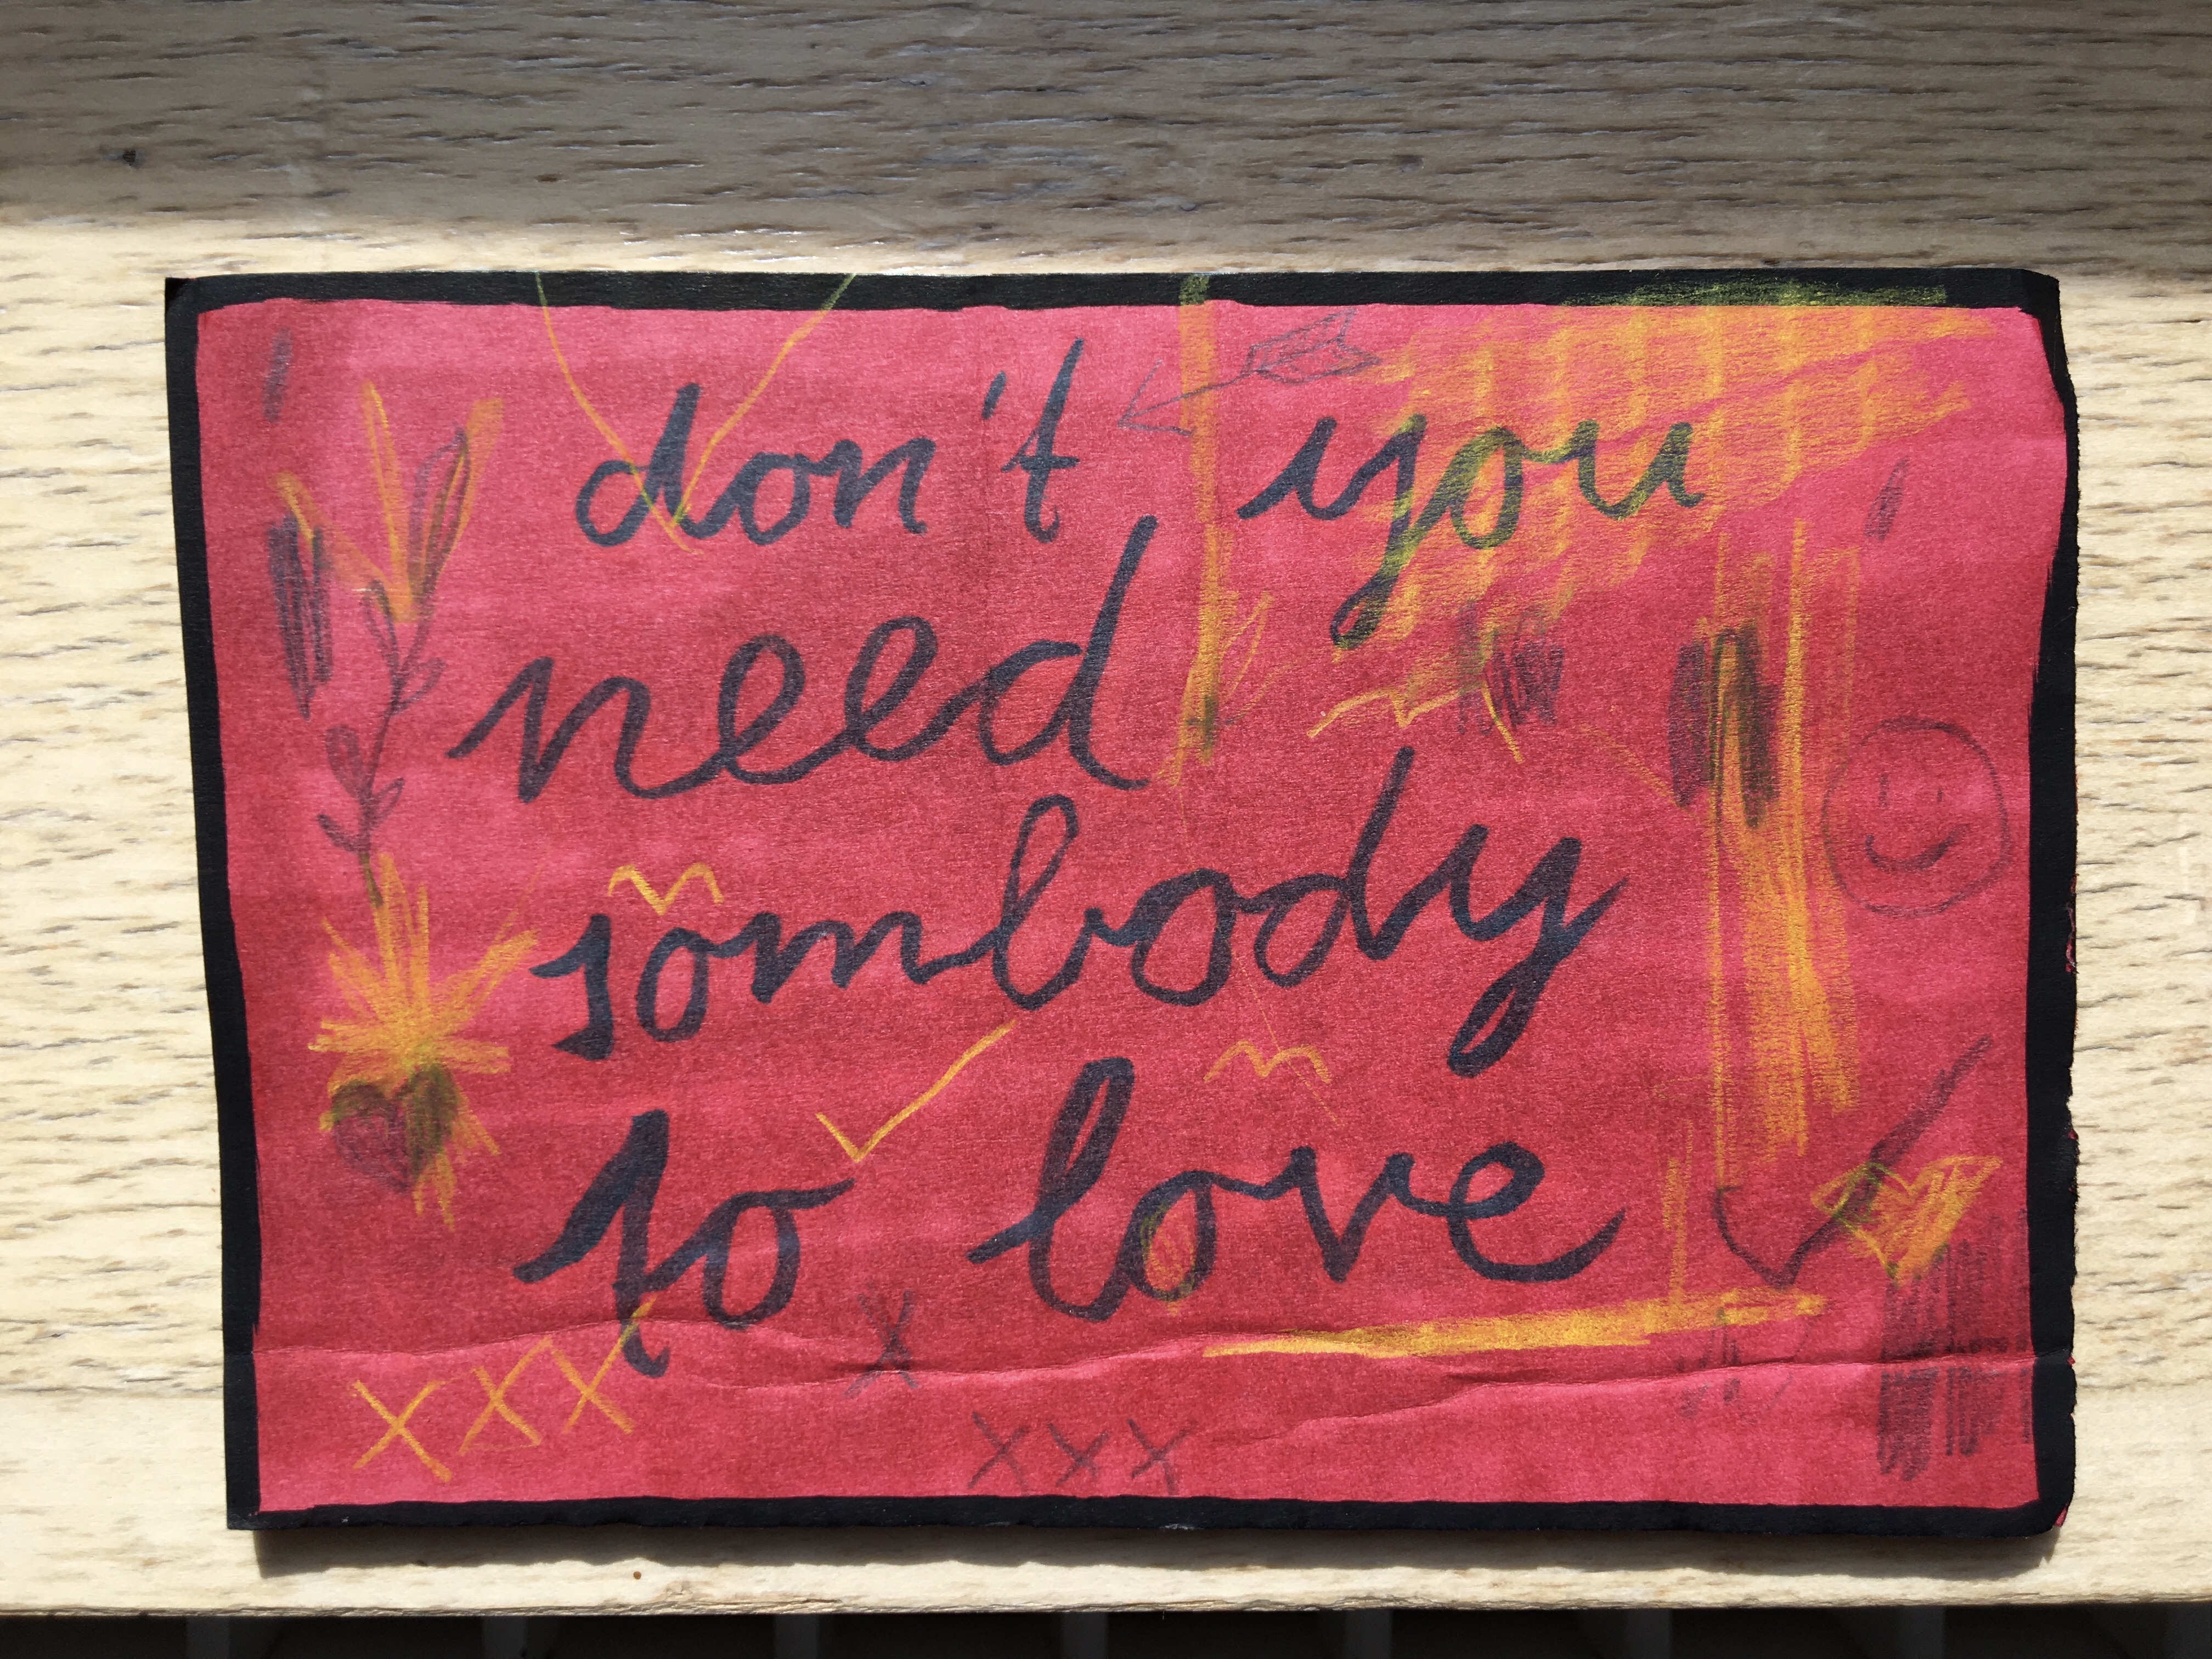 don't you
need
sombody
to love
xxx x
xxx